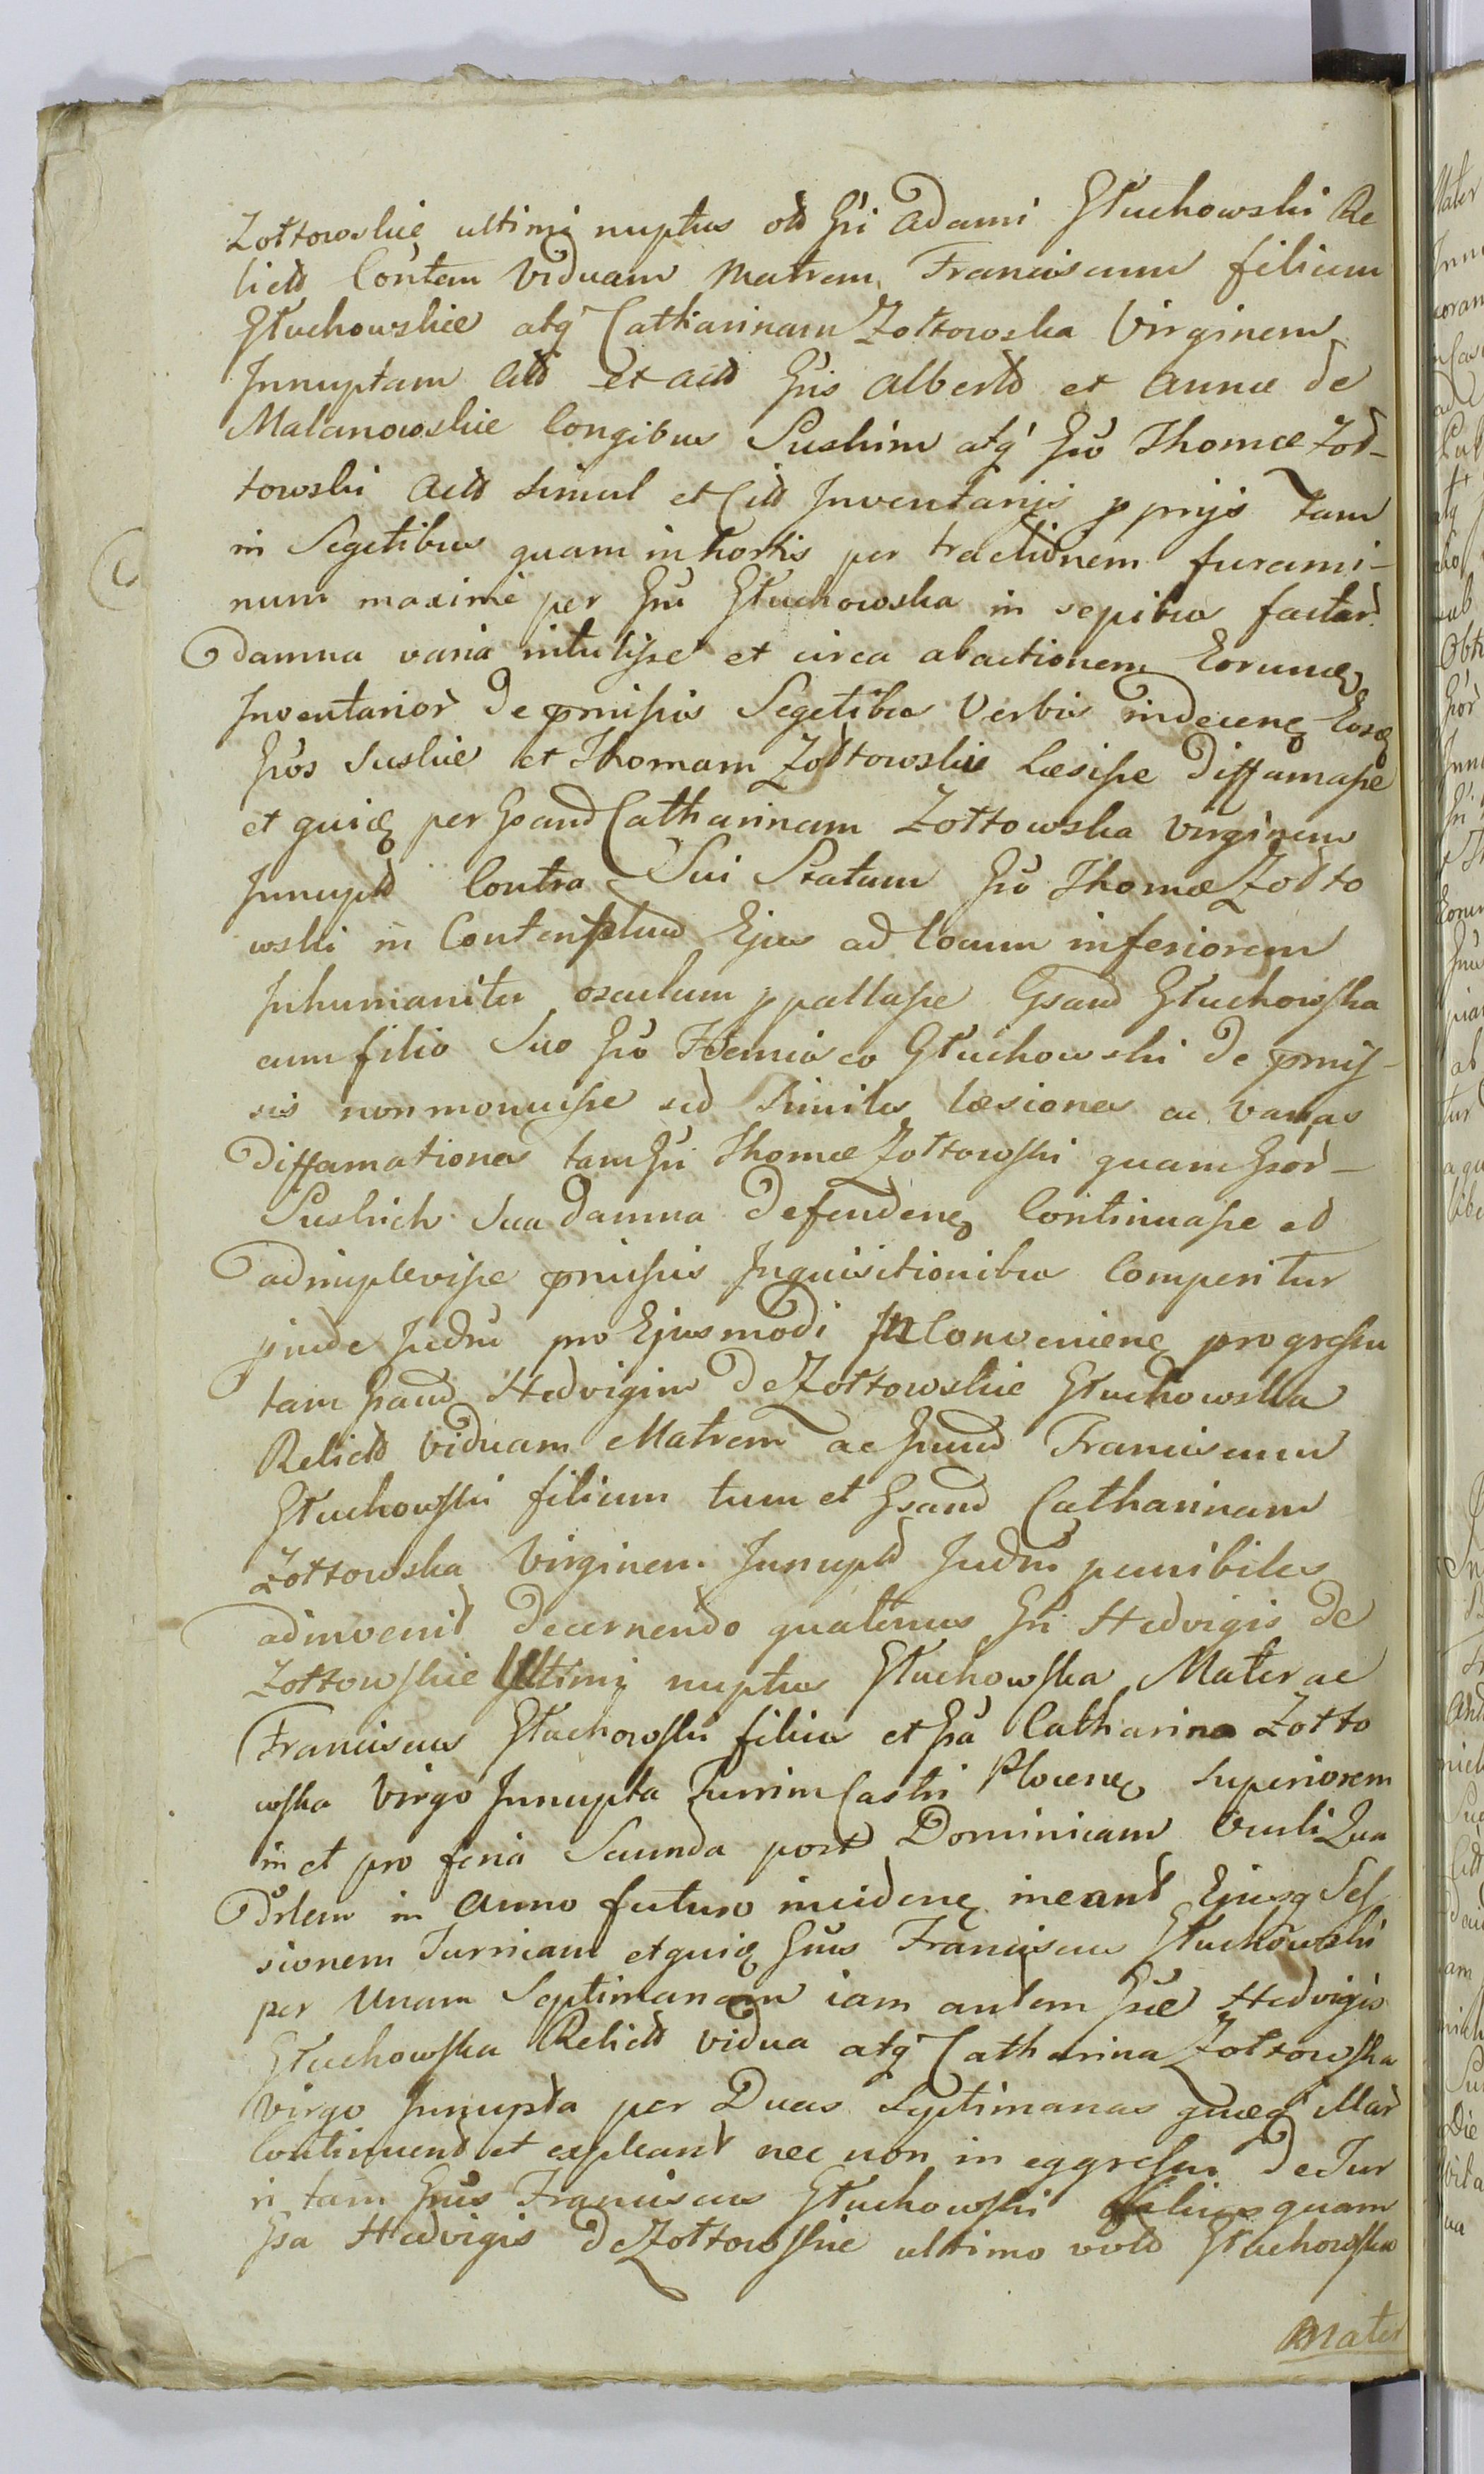 Zołtowskie ultimi nuptus old Gri Adami Głuchowski Re
lictd Contem Viduam Matrem, Franciscum filium
Głuchowskie atq Catharinam Zołtowska Virginem
Innuptam Actt et actt Gris Albertd et Annæ de
Malanowskie Congibus Suskim atq Gro Thomæ Zoł-
towski Actt simul et Citt Inventarijs pprijs tam
in Segetibus quam in hortis per tractionem furami-
num maxime per Gru Głuchowska in sepibus factar
Damna varia intulisse et circa abactionem Eorumq
Inventarior De pmissis Segetibus Verbis indecenq Eosq
Gros Suskie et Thomam Zołtowskie Læsisse Diffamasse
et quiq per Gsand Catharinam Zołtowska Virginem
Innuptd Contra Sui Statum Gro Thomæ Zołto
wski in Contemptum Ejus ad locum inferiorem
Inhumaniter osculum ppallasse Gsand Głuchowska
cum filio Suo Gro Głuchowski De pmis-
sis non monuisse sed similes læsiones ac varias
Diffamationes tam Gri Thomæ Zołtowski quam Gror-
Suskich sua Damna Defendenq Continuasse et
adimplevisse pmissis Inquisitionibus Comperitur
pinde Judm pro Ejusmodi InConvenienq progressu
tam Gsand Hedvigim De Zołtowskie Głuchowska
Relictd Viduam Matrem ac Gnud Franciscum
Głuchowski filium tum et Gsand Catharinam
Zołtowska Virginem Innuptd Judm punibiles
adinvenit Decernendo quatenus Gri Hedvigis De
Zołtowskie Ultimi nuptus Głuchowska Mater ac
Franciscus Głuchowski filius et Gsa Catharina Zołto
wska Virgo Innupta Turrim Castri Plocenq Superiorem
in et pro feria Secunda post Dominicam Oculi Qua
Drlem in Anno futuro incidenq ineant Ejusq Ses
sionem Turricam et quiq Gnus Franciscus Głuchowski
per Unam Septimanam iam autem Gsæ Hedvigis
Głuchowska Relictd vidua atq Catharina Zołtowska
Virgo Innupta per Duas Septimanas quæq illar
Continuent et expleant nec non in eggressu De Tur
ri tam Gnus Franciscus Głuchowski filius quam
Gsa Hedvigis De Zołtowskie ultimo votd Głuchowska
Mater